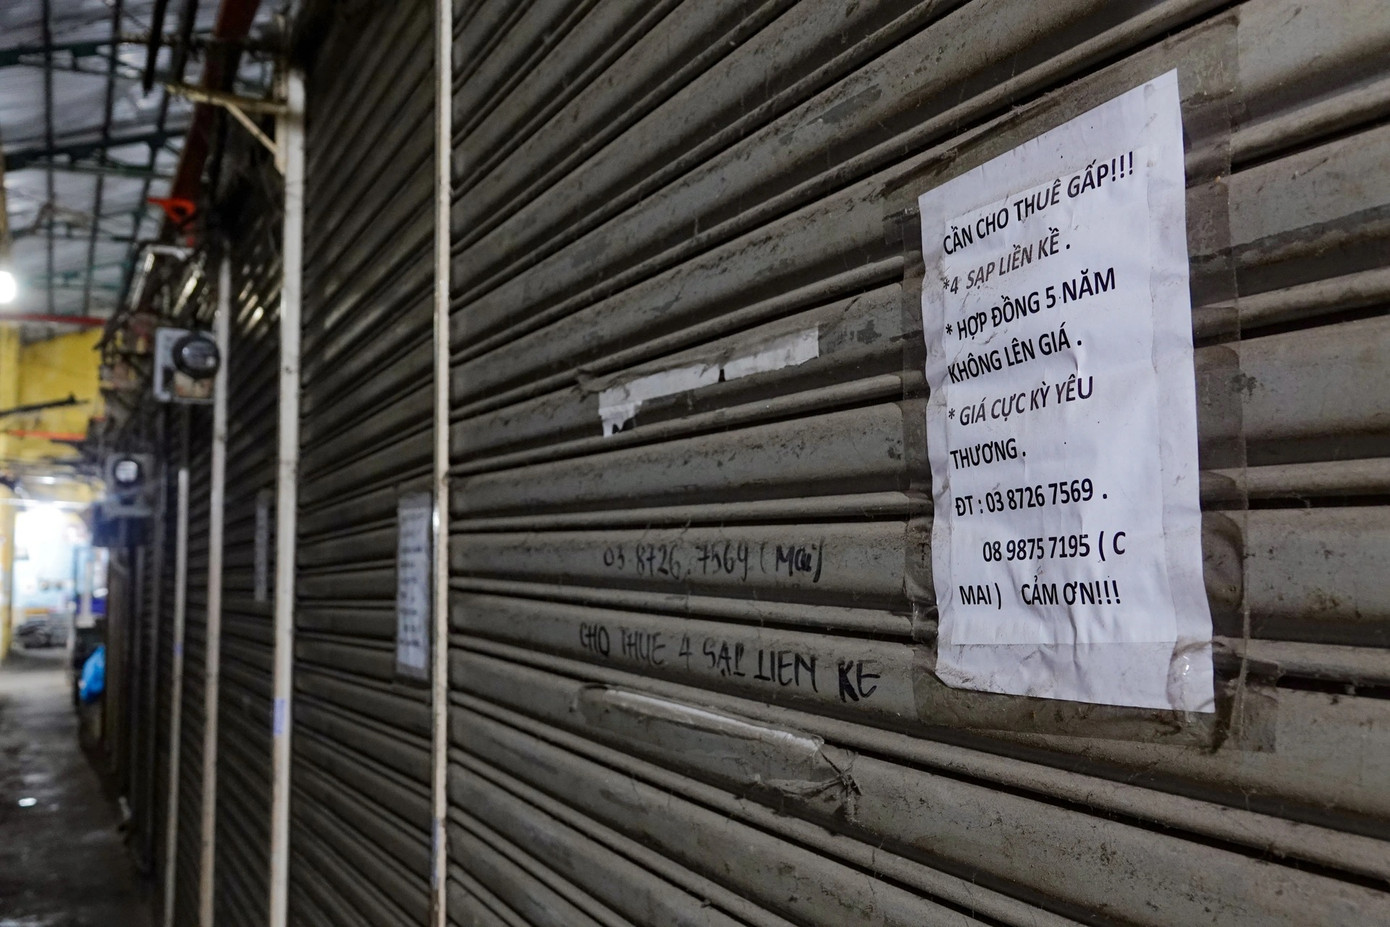 CẦN CHO THUÊ GẤP!!!
*4 SẠP LIỀN KỀ .
* HỢP ĐỒNG 5 NĂM
KHÔNG LÊN GIÁ .
* GIÁ CỰC KỲ YÊU
THƯƠNG .
ĐT : 03 8726 7569 .
08 9875 7195 ( C
MAI ) CẢM ƠN!!!
03 8726.7569 ( Mai )
CHO THUE 4 SAP LIEN KE